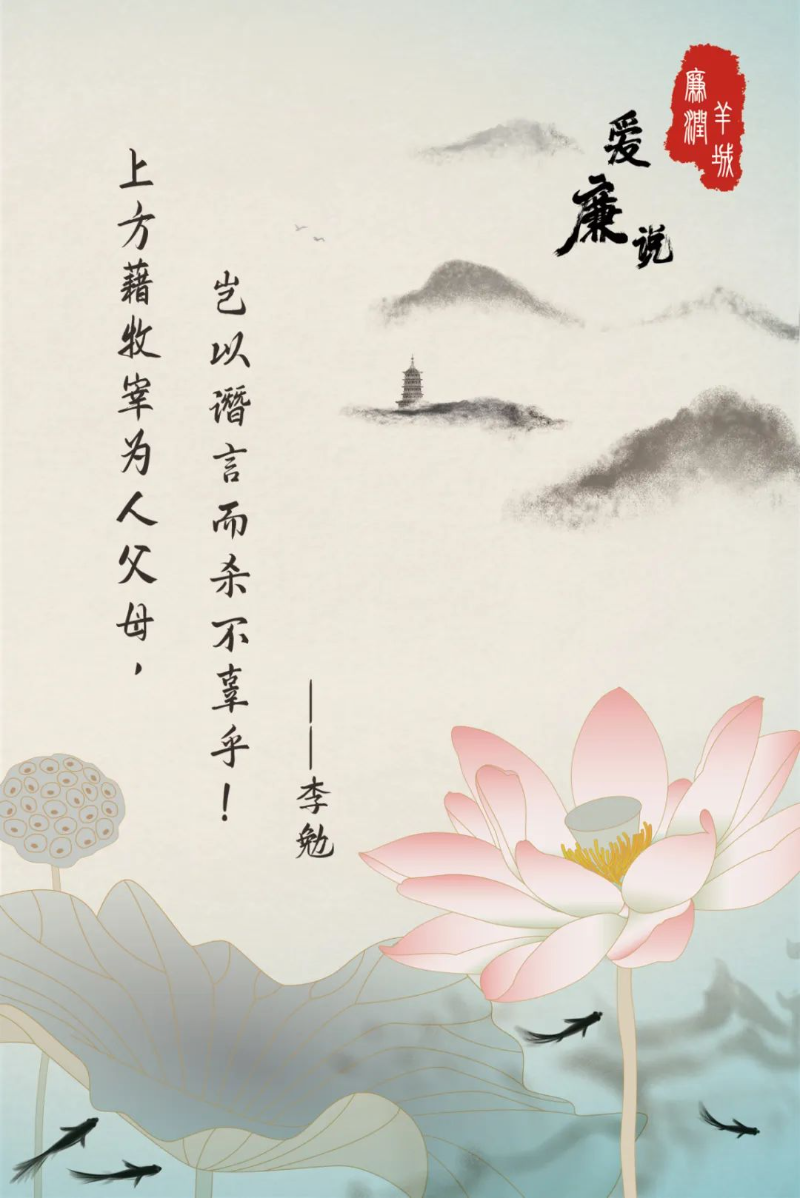 廉潤
羊城
爱廉说
上方藉牧宰为人父母，
岂以谮言而杀不辜乎！
——李勉